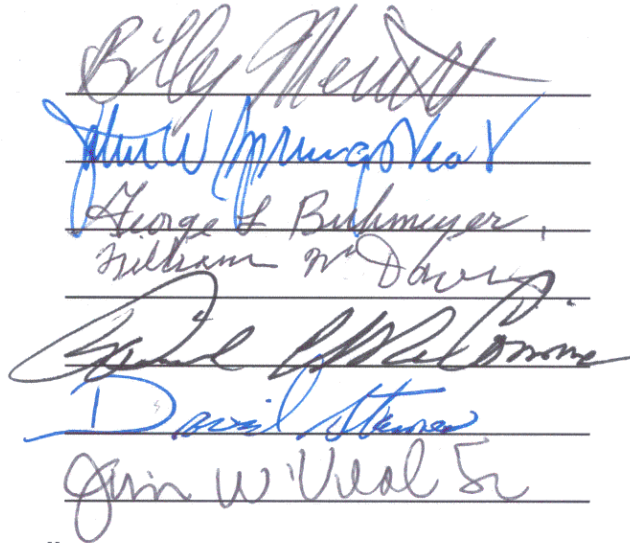 Billy Merritt
John W Springsteat
George L Buhmeyer,
William M Davis
David
David
Jim W Veal Sr